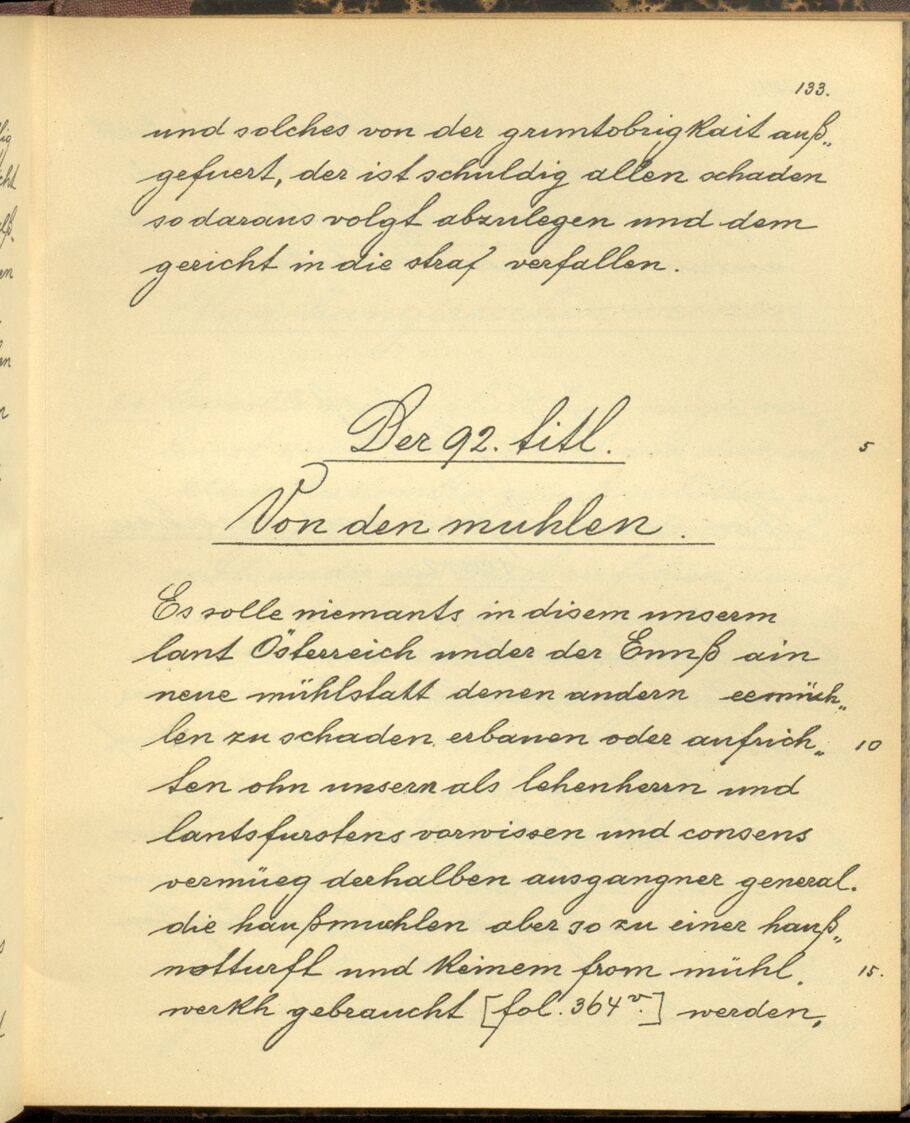 133.
und solches von der gruntobrigkait auß„
gefuert, der ist schuldig allen schaden
so daraus volgt abzulegen und dem
gericht in die straf verfallen.
Der 92. titl.
5
Von den muhlen.
Es solle niemants in disem unserm
lant Österreich under der Ennß ain
neue mühlstatt denen andern eemüh„
len zu schaden erbauen oder aufrich„
10
ten ohn unsern als lehenherrn und
lantsfurstens vorwissen und consens
vermüeg derhalben ausgangner general.
die haußmuhlen aber so zu einer hauß„
notturft und keinem from mühl.
15.
werkh gebraucht [fol. 364v.] werden,